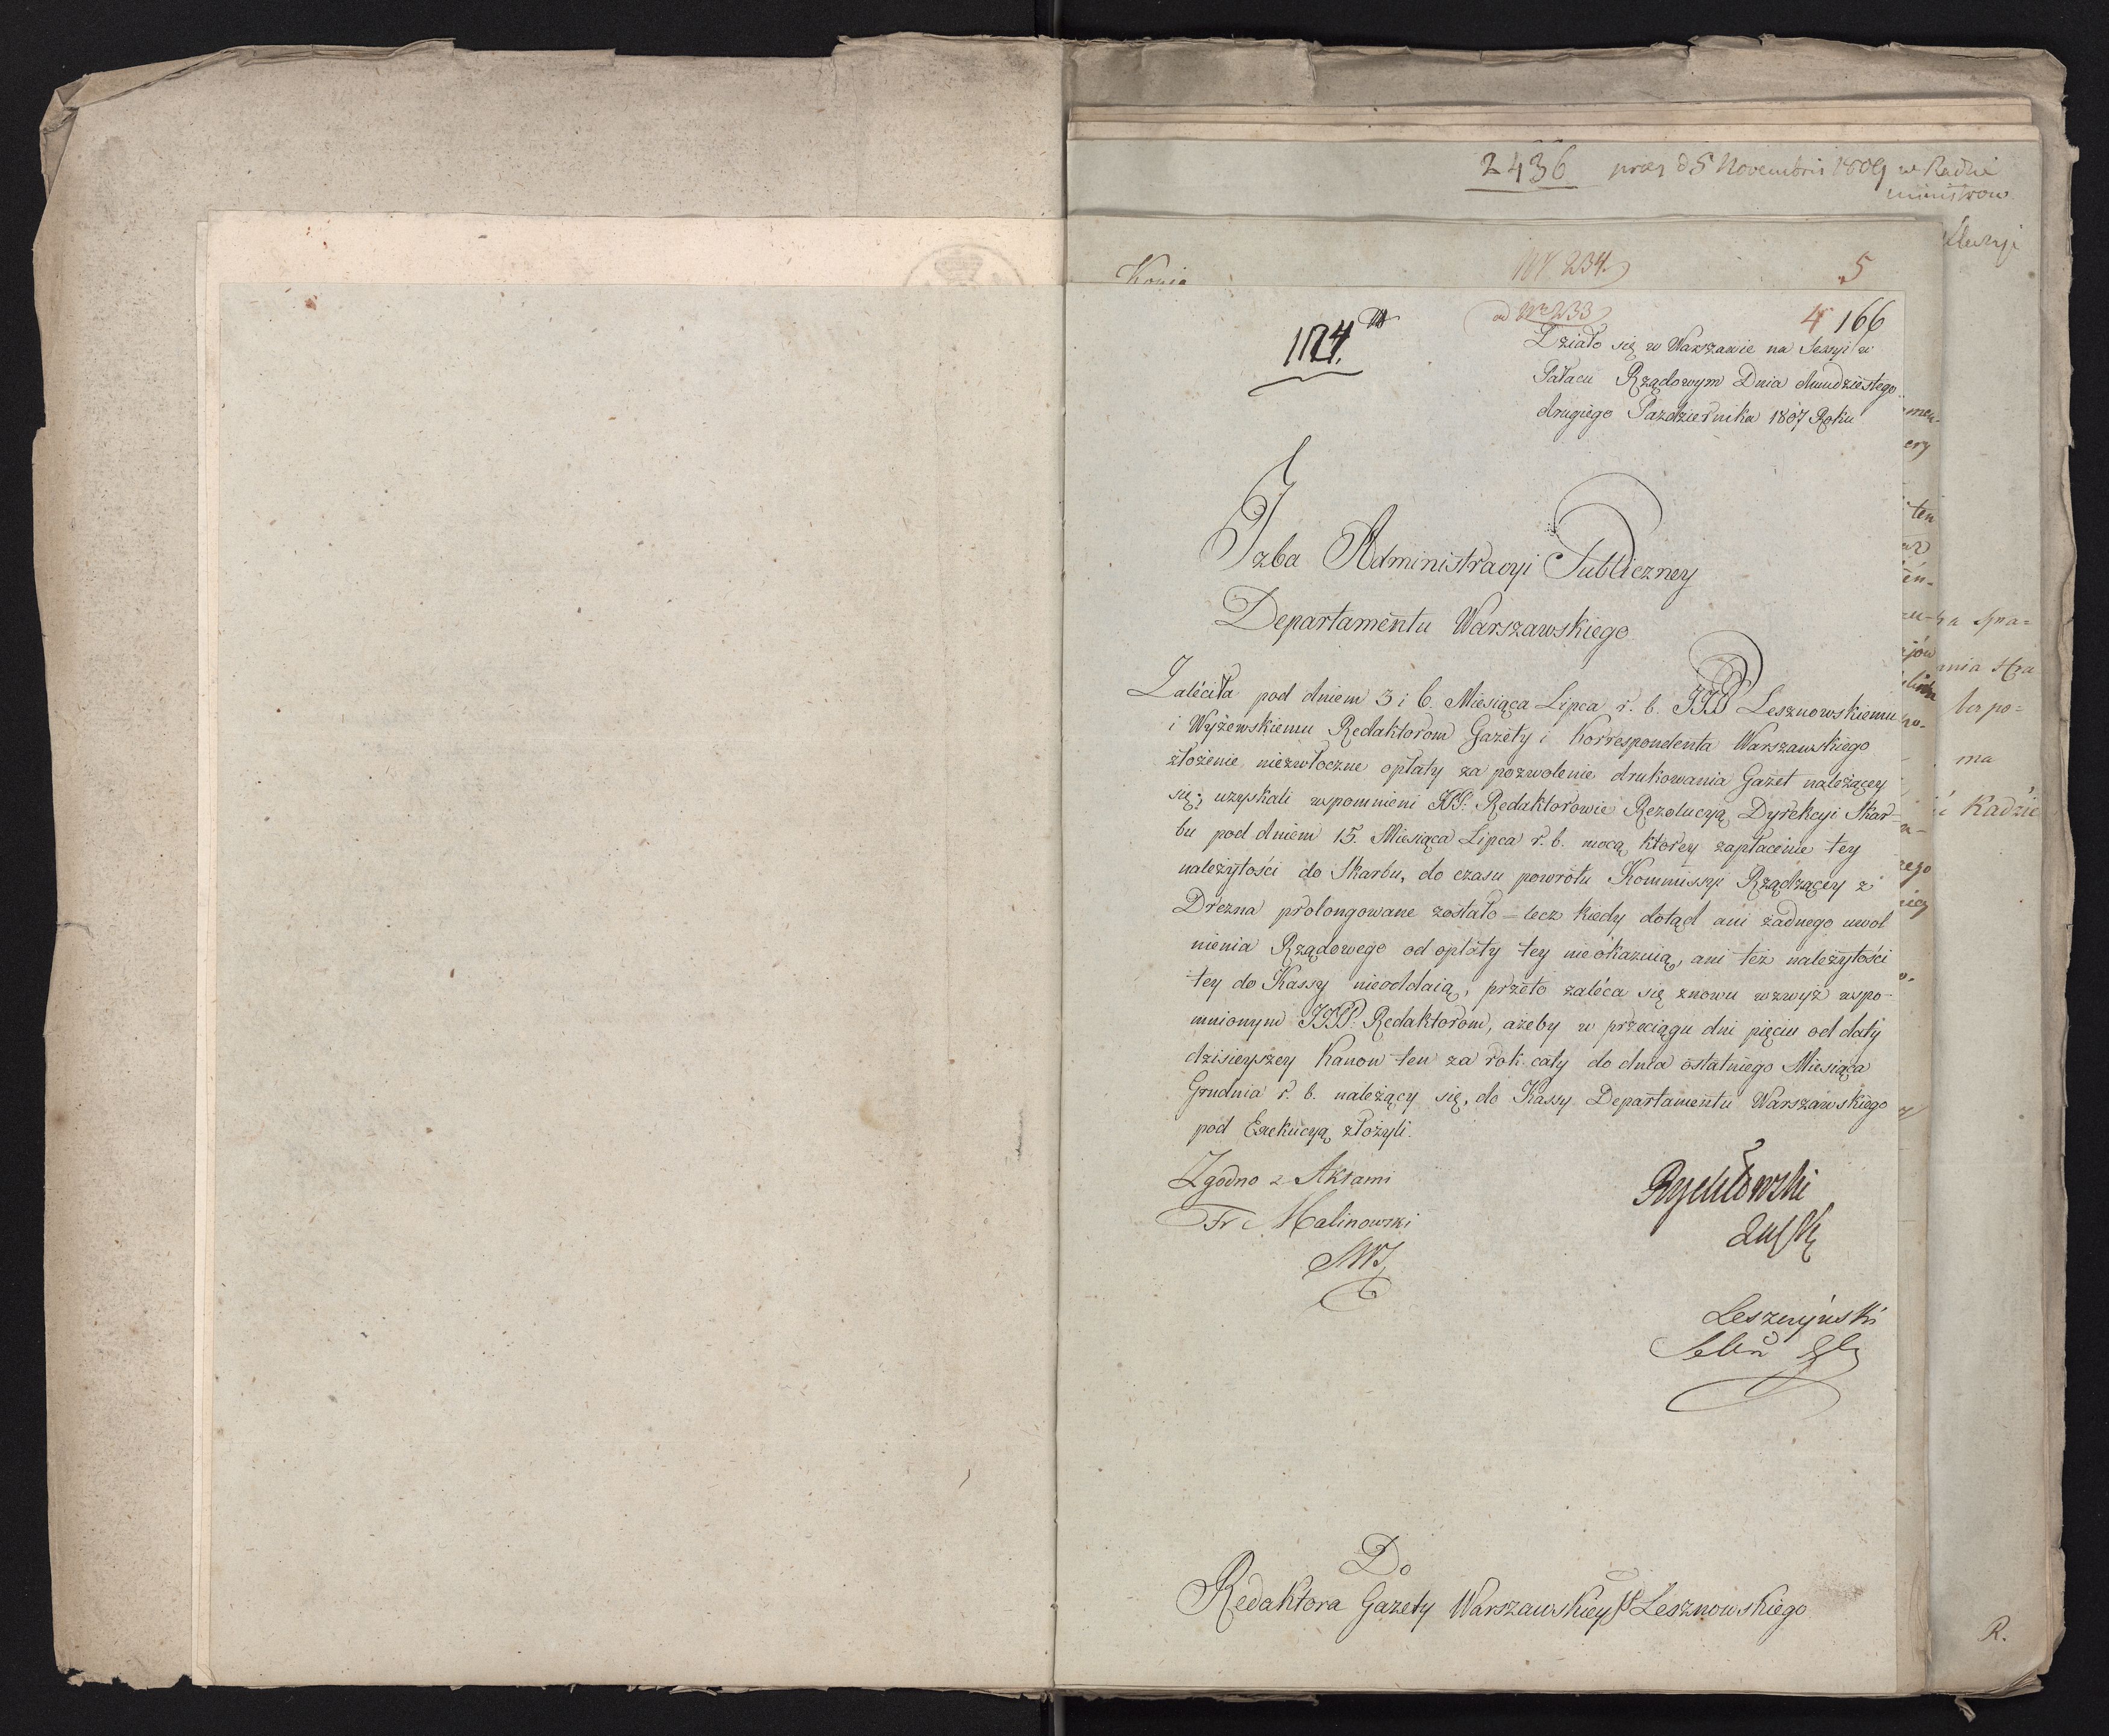 2436 prez d 5 Novembris 1809 w Radzie
ministrow
Kopia
Nr 234.
5
ad Nro 233
4 166
1124.
Działo się w Warszawie na Sessyi w
Pałacu Rządowym Dnia dwudziestego
drugiego Pazdziernika 1807 Roku
Izba Administracyi Publiczney
Departamentu Warszawskiego
Zaléciła pod dniem 3 i 6. Miesiąca Lipca r. b. JJPP Lesznowskiemu
i Wyżewskiemu Redaktorom Gazéty i Korrespondenta Warszawskiego
złożenie niezwłoczne opłaty za pozwolenie drukowania Gazet należącey
się; uzyskali wspomnieni JPP: Redaktorowie Rezolucyą Dyrekcyi Skar-
bu pod dniem 15. Miesiąca Lipca r. b. mocą ktorey zapłacenie tey
należytości do Skarbu, do czasu powrotu Kommissyi Rządzącey z
Drezna prolongowane zostało – lecz kiedy dotąd ani żadnego uwol
nienia Rządowego od opłaty tey nieokazuią, ani też należytości
tey do Kassy nieoddaią, przeto zaléca się znowu wzwyż wspo-
mnionym JJPP: Redaktorom, ażeby w przeciągu dni pięciu od daty
dzisieyszey Kanon ten za rok cały do dnia ostatniego Miesiąca
Grudnia r. b. należący się, do Kassy Departamentu Warszawskiego
pod Exekucyą złożyli.
Zgodno z Aktami
Fr Malinowski
Rydułowski
Leszczyński
Do
Redaktora Gazety Warszawskiey JP Lesznowskiego
R.